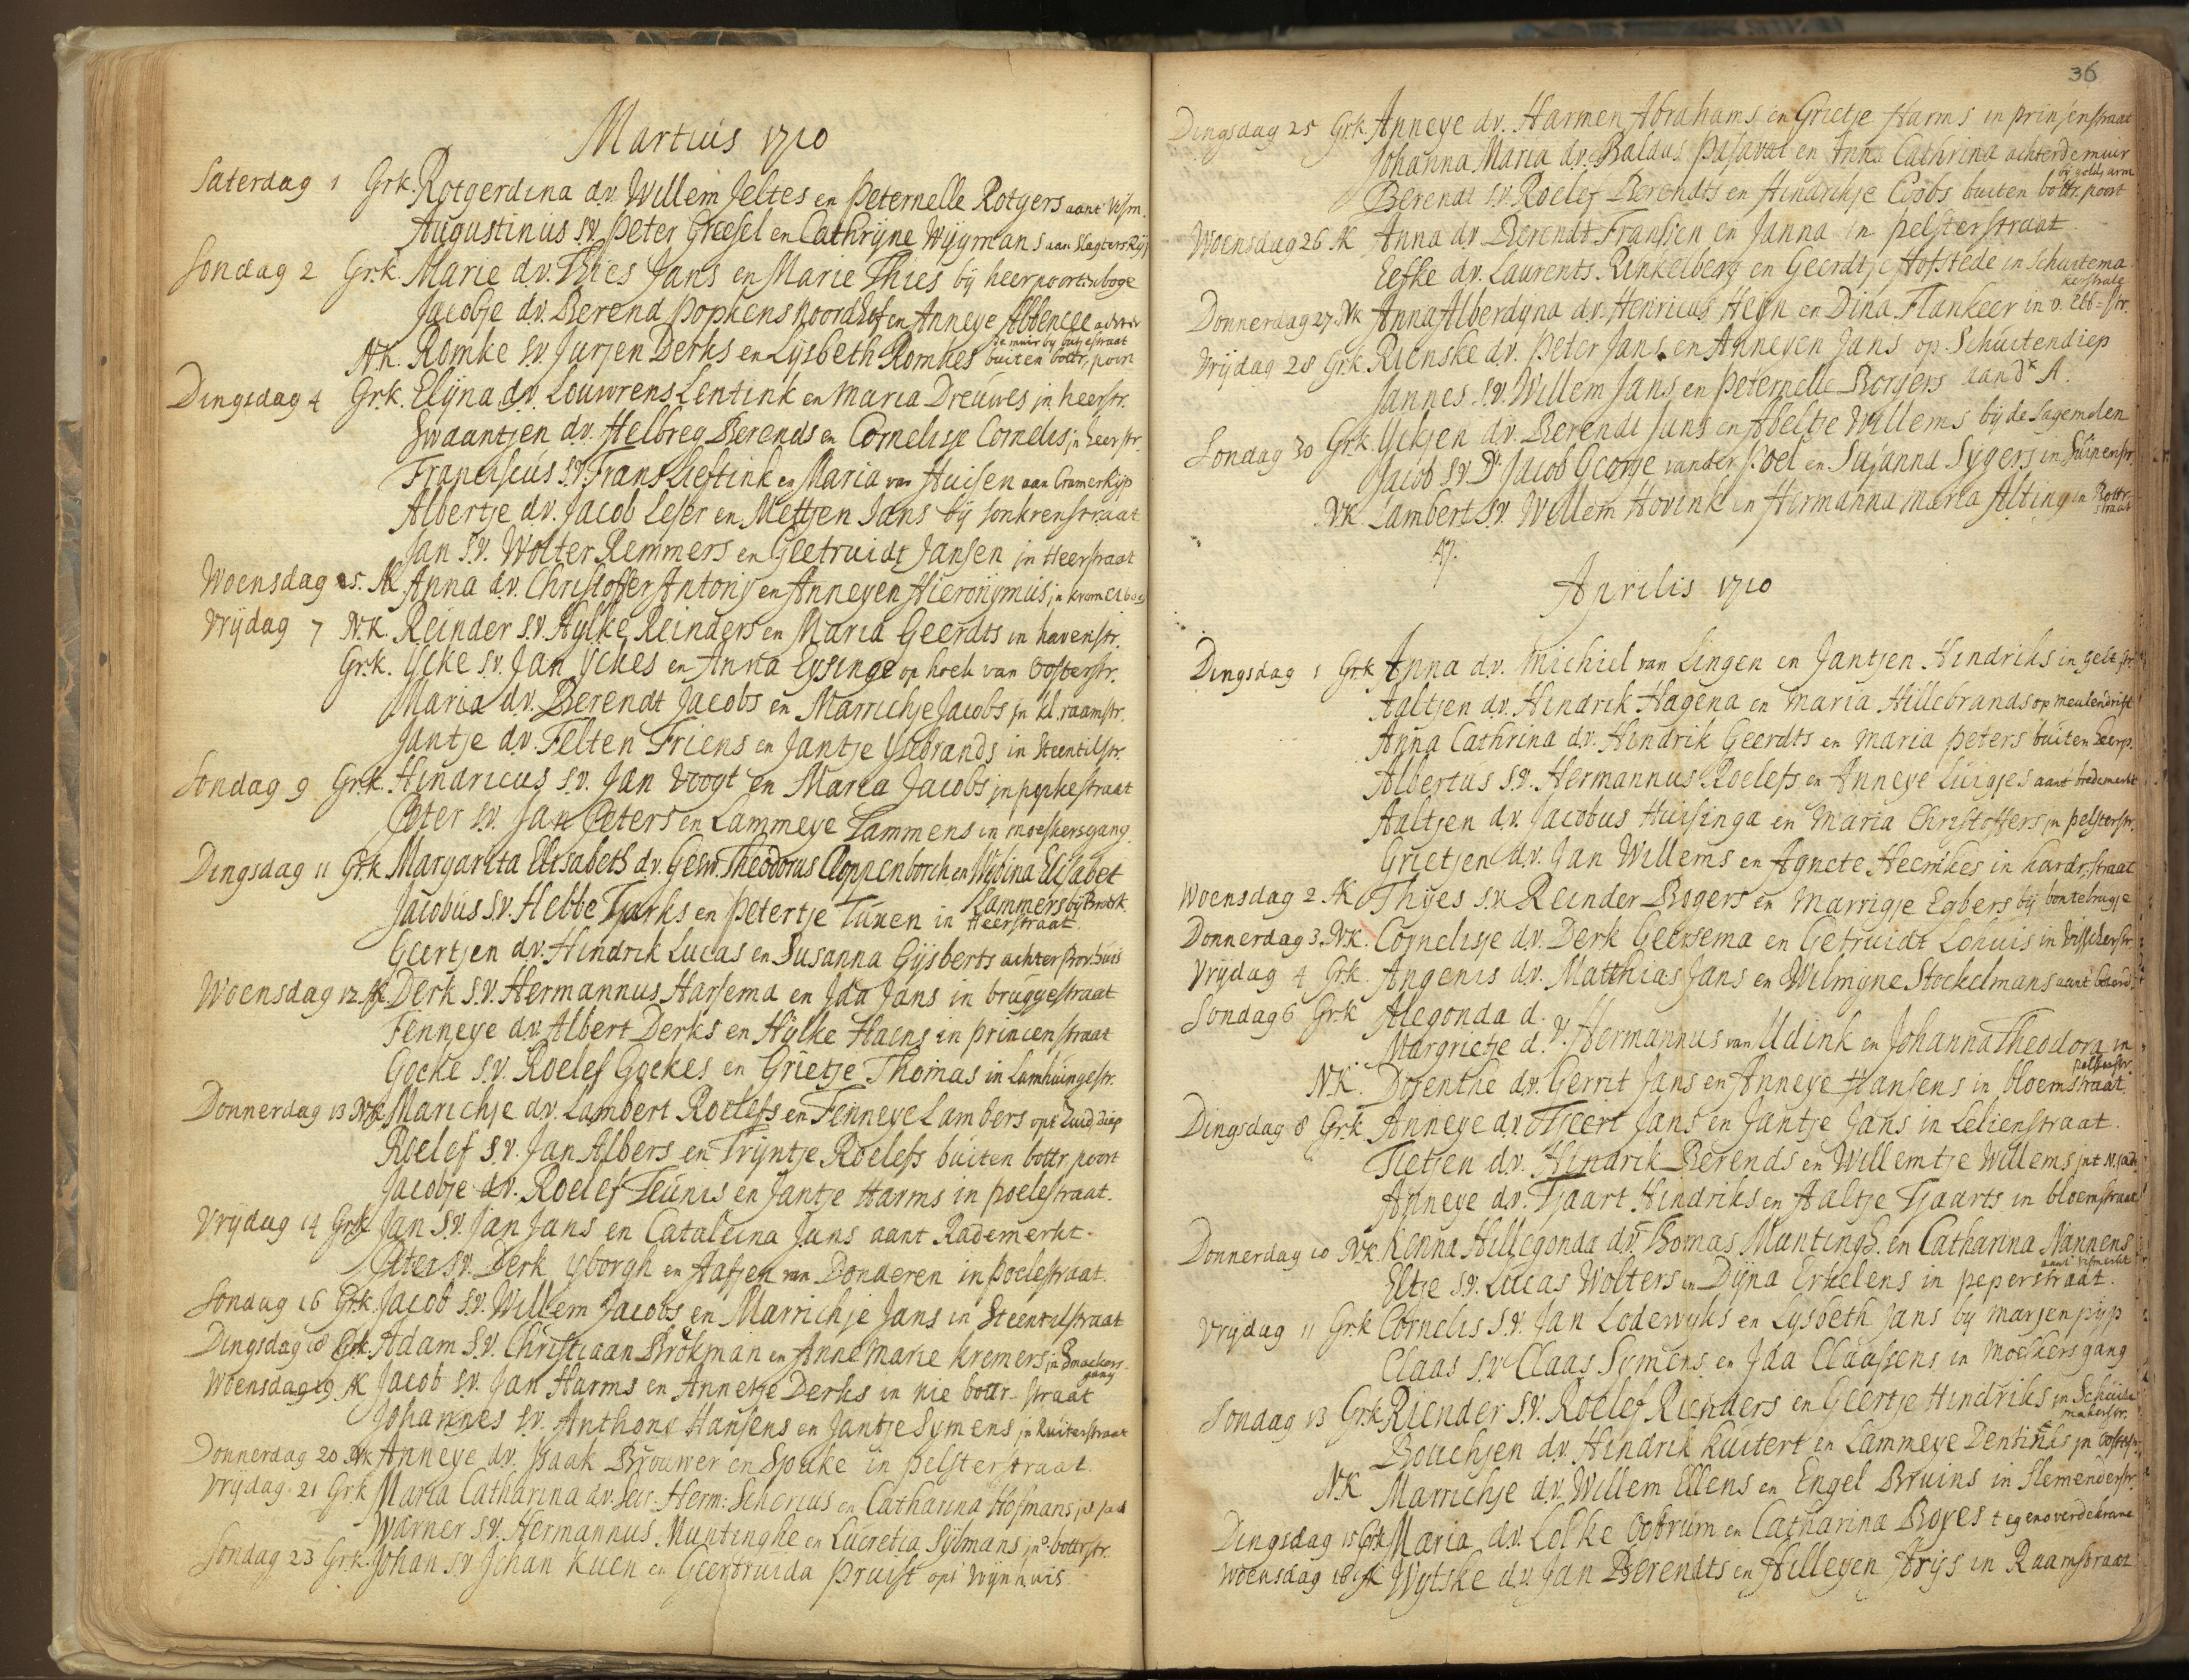 Martius 1710
Saterdag 1 Grk. Rotgerdina d.v. Willem Jeltes en Peternelle Rotgers aant Vism.
Augustinus s.v. Peter Greesel en Cathryne Wygmans aan Slagters Ryp
Sondag 2 Grk. Marie d.v. Thies Jans en Marie Thies by heerpoortenboge
Jacobje d.v. Berend Popkens Noordhof en Anneye Abbencee achter
de muir by butjestraat
N.k. Romke s.v. Jurjen Derks en Lysbeth Romkes buiten bottr. poort
Dingsdag 4 Grk. Elyna d.v. Louwrens Lentink en Maria Dreuwes in heerstr.
Swaantjen d.v. Helbreg Berends en Cornelisje Cornelis in heerstr.
Franciscus s.v. Frans Lieftink en Maria van Huisen aan Cramer Ryp
Albertje d.v. Jacob Leser en Mettjen Jans by sonkrenstraat
Jan s.v. Wolter Remmers en Geetruidt Jansen in Heerstraat
Woensdag 5. AK. Anna d.v. Christoffer Antony en Anneyen Hieronymus in
Vrydag 7 N.K. Reinder s.v. Hylke Reinders en Maria Geerdts in havenstr.
Grk. Ycke s.v. Jan Yckes en Anna Eysinge op hoek van Oosterstr.
Maria d.v. Berendt Jacobs en Marrichje Jacobs in kl. raamstr.
Jantje d.v. Felten Friens en Jantje Ysebrands in steentilstr.
Sondag 9 Grk. Hindricus s.v. Jan Voogt en Maria Jacobs in popkestraat
Peter s.v. Jan Peters en Lammeye Lammens in moeskersgang
Dingsdag 11 Grk Margarita Elisabeth d.v. Gesw. Theodorus Cloppenborch en Wibina Elisabet
Lammers by Br. kerk.
Jacobus s.v. Hebbe Tjarks en Petertje Tuxen in Heerstraat.
Geertjen d.v. Hindrik Lucas en Susanna Gysberts achter Prov. huis
Woensdag 12 AK Derk s.v. Hermannus Harsema en Ida Jans in bruggestraat
Fenneye d.v. Albert Derks en Hylke Haens in princenstraat
Gocke s.v. Roelef Gockes en Grietje Thomas in Lamhuingestr.
Donnerdag 13 N.K. Marichje d.v. Lambert Roelefs en Fenneye Lambers opt Zuid diep
Roelef s.v. Jan Albers en Tryntje Roelefs buiten bottr. poort
Jacobje d.v. Roelef Teunis en Jantje Harms in poelestraat.
Vrydag 14 Grk Jan s.v. Jan Jans en Cataleina Jans aant Rademerkt.
Peter s.v. Derk yborgh en Aafjen van Donderen in Poelestraat.
Sondag 16 Grk. Jacob s.v. Willem Jacobs en Marrichje Jans in Steentilstraat
Dingsdag 18 Grk. Adam s.v. Christiaan Brökman en Anne Marie Kremers in Smackers
gang
Woensdag 19. AK Jacob s.v. Jan Harms en Annetje Derks in nie bottr. straat
Johannes s.v. Anthons Hansens en Jantje Symens in Ruiterstraat
Donnerdag 20 N.K Anneye d.v. Isaak Brouwer en Spuke in pelsterstraat.
Vrydag 21 Grk Maria Catharina d.v. Secr. Herm: Schorius en Catharina Hofmans
Warner s.v. Hermannus Muntinghe en Lucretia Sylmans in o. bottrstr.
Sondag 23 Grk. Johan s.v. Johan Kuen en Geertruida Pruist opt Wynhuis
36
Dingsdag 25 Grk. Anneye d.v. Harmen Abrahams en Grietje Harms in prinsenstraat
Johanna Maria d.v. Baldus Pasavat en Anna Cathrina achter de muir
by golds arm
Berendt s.v. Roelef Berendts en Hindrikje Coobs buiten bottr. poort
Woensdag 26 AK Anna d.v. Berendt Franssen en Janna in pelsterstraat
Eefke d.v. Laurents Rinkelberg en Geerdtje Hofstede in Schuitema
kerstrate
Donnerdag 27. NK Anna Alberdyna d.v. Henricus Heyn en Dina Flankeer in o. Ebb-str.
Vrydag 28 Grk. Rienske d.v. Peter Jans en Anneyen Jans op Schuitendiep
Jannes s.v. Willem Jans en Peternelle Borgers aan dr A.
Sondag 30 Grk. Yckjen d.v. Berendt Jans en Abeltje Willems by de Sagemolen
Jacob s.v. Dr. Jacob George vander Poel en Susanna Sygers in Suipenstr.
NK Lambert s.v. Willem Hovink en Hermanna Maria Alting in Bottr.
straat
47.
Aprilis 1710
Dingsdag 1 Grk Anna d.v. Michiel van Lingen en Jantjen Hindriks in gelk.str.
Aaltjen d.v. Hindrik Hagena en Maria Hillebrands op meulendrift
Anna Cathrina d.v. Hindrik Geerdts en Maria Peters buiten heerp.
Albertus s.v. Hermannus Roelefs en Anneye Luigjes aant brede merkt
Aaltjen d.v. Jacobus Huisinga en Maria Christoffers in pelsterstr.
Grietjen d.v. Jan Willems en Agnete Heemkes in hardr. straat
Woensdag 2 AK Thyes s.v. Reinder Rogers en Marrigje Egbers by bontebrugje
Donnerdag 3. NK. Cornelisje d.v. Derk Geersema en Getruidt Lohuis in Visscherstr.
Vrydag 4 Grk. Angenis d.v. Matthias Jans en Wilmyne Stockelmans aant
Sondag 6 Grk Alegonda d.
Margrietje d. v. Hermannus van Udink en Johanna Theodora in
pelsterstr.
NK. Dojenthe d.v. Gerrit Jans en Anneye Hansens in bloemstraat.
Dingsdag 8 Grk. Anneye d.v. Tjeert Jans en Jantje Jans in Lelienstraat.
Tietjen d.v. Hindrik Berends en Willemtje Willems int N. jadt
Anneye d.v. Tjaart Hindriks en Aaltje Tjaarts in bloemstraat
Donnerdag 10 NK Kenna Hillegonda d.v. Thomas Muntingh en Catharina Nannens
aant vismerkt
Eltje s.v. Lucas Wolters en Dyna Erkelens in peperstraat.
Vrydag 11 Grk Cornelis s.v. Jan Lodewyks en Lysbeth Jans by marjenpyp
Claas s.v. Claas Symens en Ida Claassens in Moeskersgang
Sondag 13 Grk Riender s.v. Roelef Rienders en Geertje Hindriks in Schuite
makerstr.
Bouchjen d.v. Hindrik Kuitert en Lammeye Densings in Oosterstr.
NK Marrichje d.v. Willem Ellens en Engel Bruins in Slemenderstr.
Dingsdag 15 Grk Maria d.v. Lolke Oobrum en Catharina Boyes tegenover de krane
Woensdag 16 AK Wytske d.v. Jan Berendts en Hilleyen Arys in Raamstraat